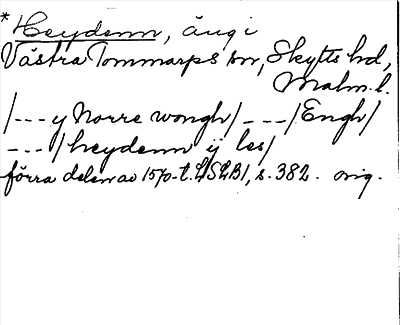 *Heydenn, äng i
Västra Tommarps sn, Skytts hd,
Malm. l.
/--- y Norre wongh/ --- /Engh/
--- /heydenn ij les/
förra delen av 1570-t. LSLB1, s. 382. orig.